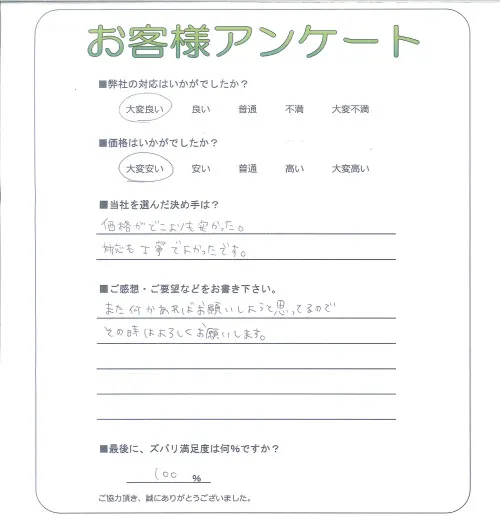 お客様アンケート
■弊社の対応はいかがでしたか?
大変良い 良い 普通 不満 大変不満
■価格はいかがでしたか?
大変安い 安い 普通 高い 大変高い
■当社を選んだ決め手は?
価格がどこよりも安かった。
対応も丁寧でよかったです。
■ご感想・ご要望などをお書き下さい。
また何かあればお願いしようと思ってるので
その時はよろしくお願いします。
■最後に、ズバリ満足度は何%ですか?
100 %
ご協力頂き、誠にありがとうございました。